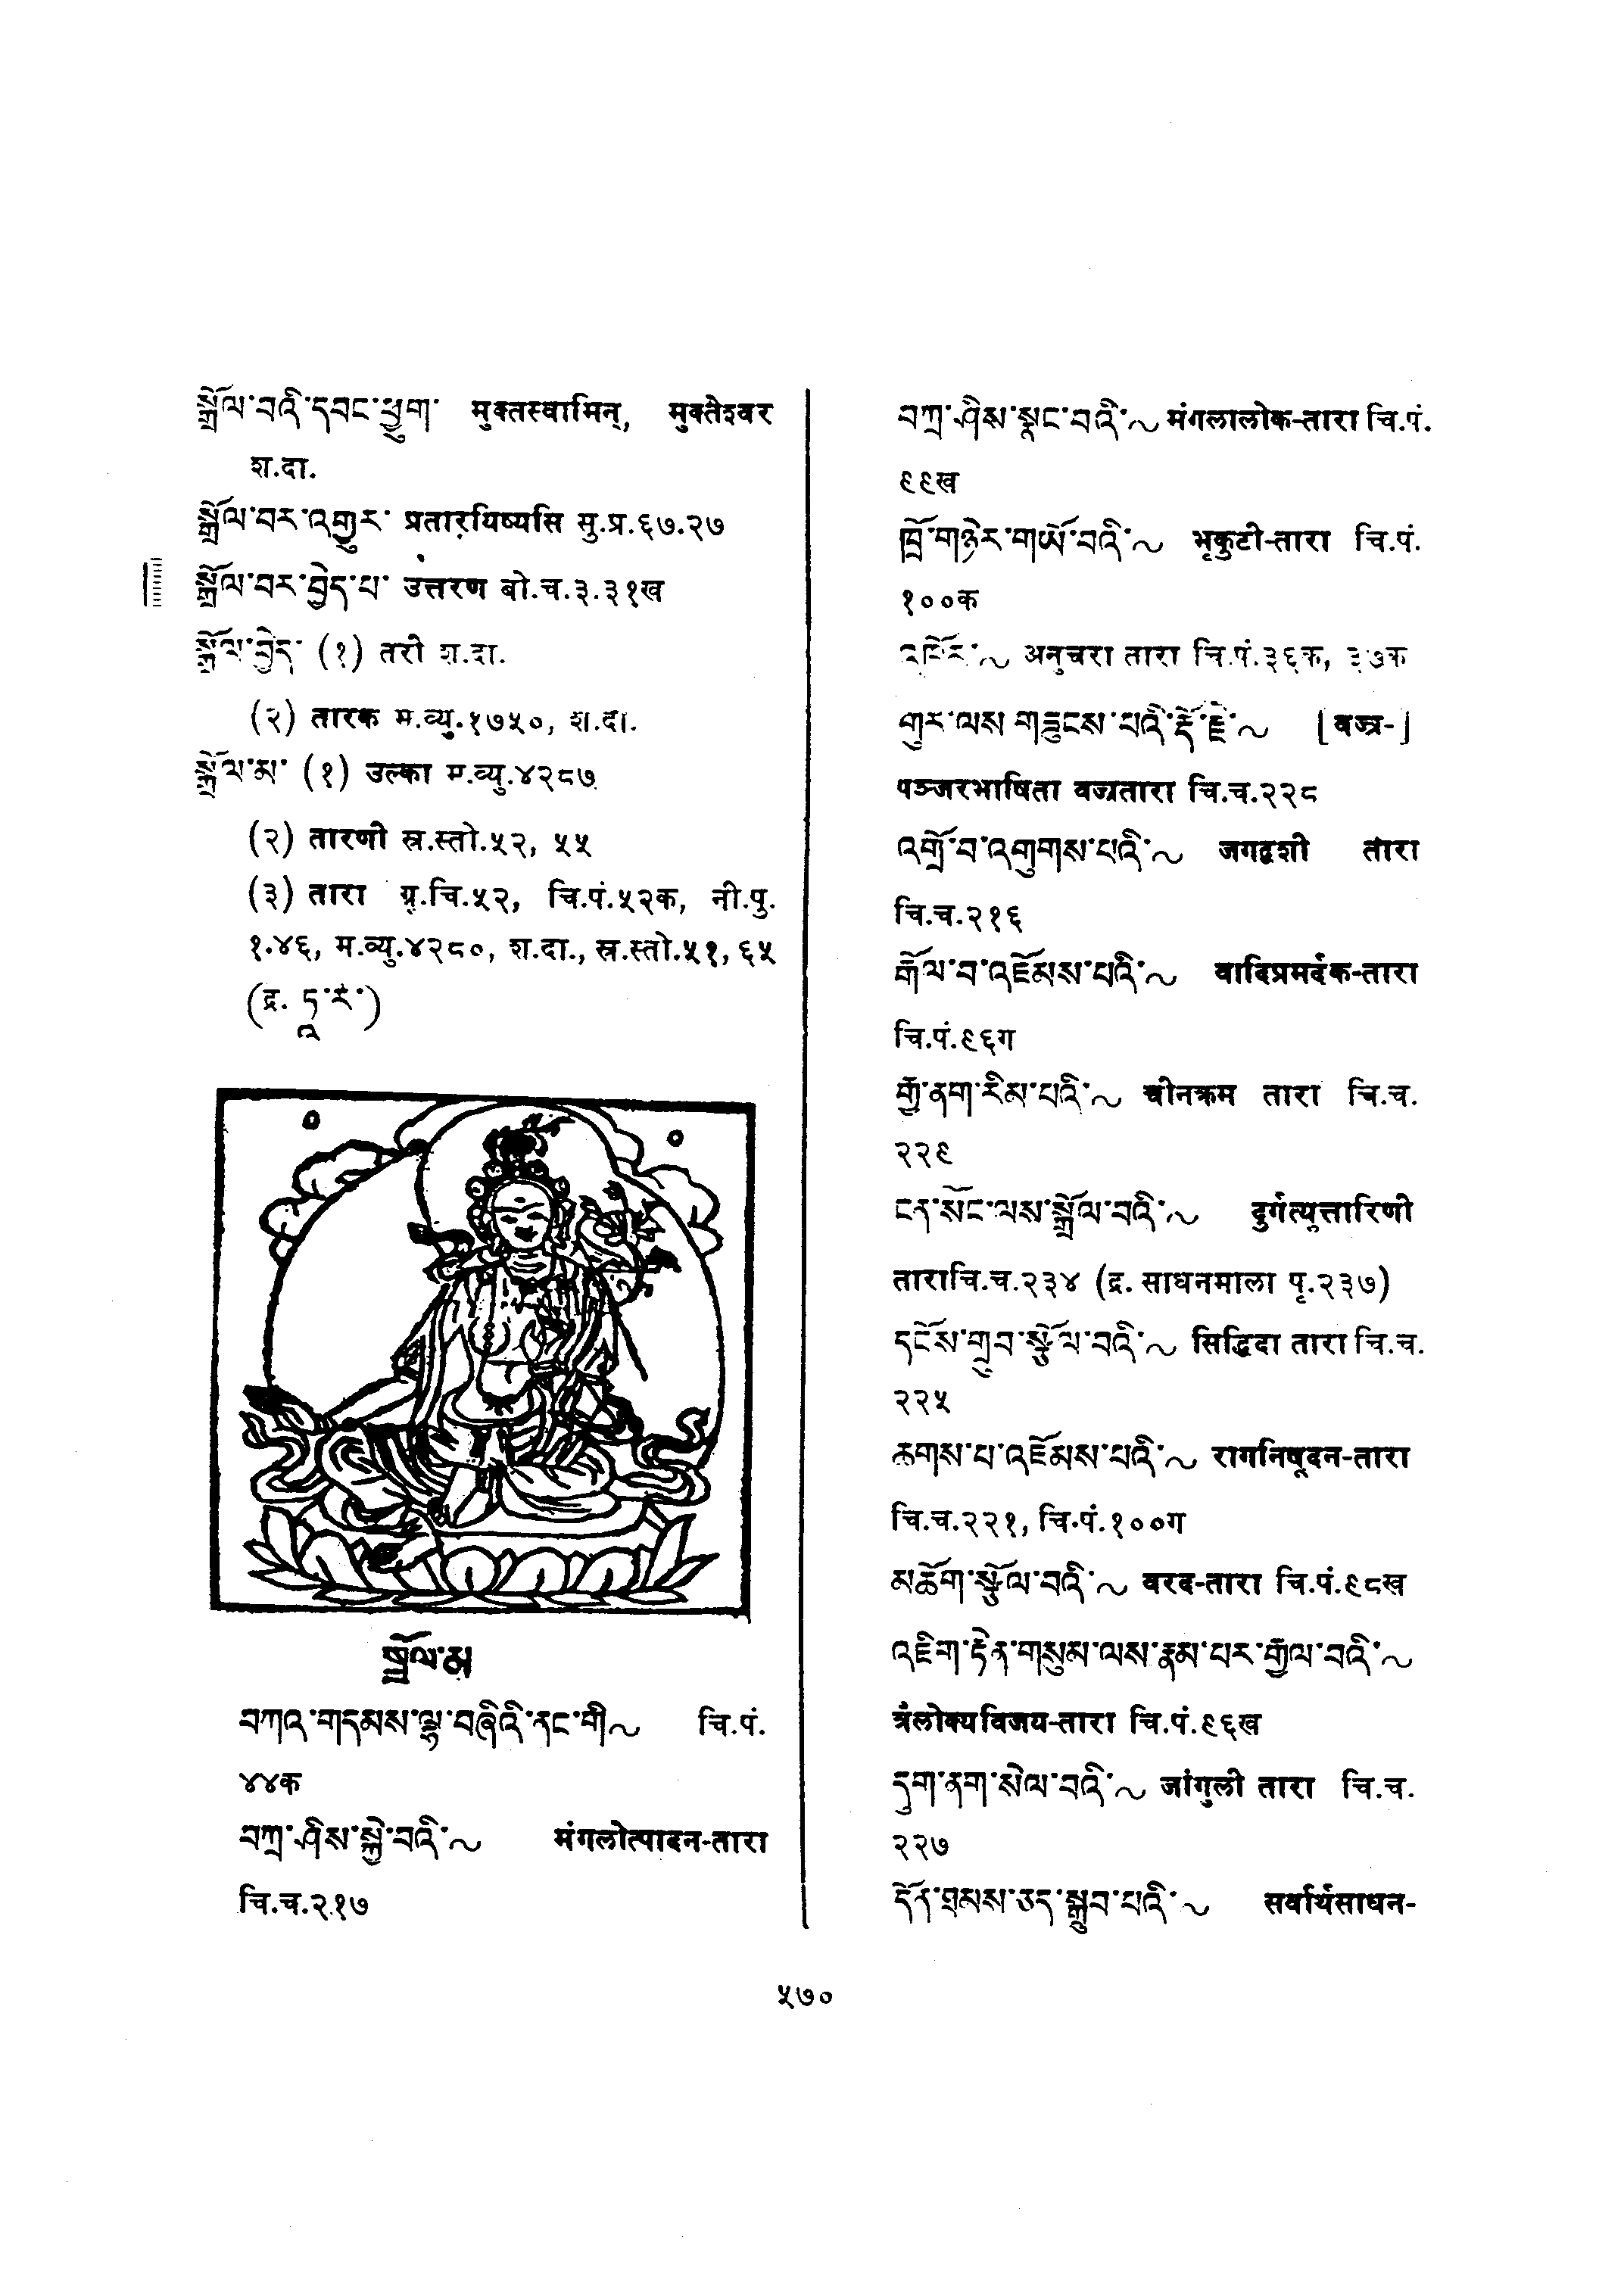 སྒྲོལ་བའི་དབང་ཕྱུག་ मुक्तस्वामिन्, मुक्तेश्वर
श.दा.
སྒྲོལ་བར་འགྱུར་ प्रतारयिष्यसि सु.प्र.६७.२७
སྒྲོལ་བར་བྱེད་པ་ उत्तरण बो.च.३.३१ख
སྒྲོལ་བྱེད་ (१) तरी श.दा.
(२) तारक म.व्यु.१७५०, श.दा.
སྒྲོལ་མ་ (१) उल्का म.व्यु.४२८७
(२) तारणी स्र.स्तो.५२, ५५
(३) तारा ग्र.चि.५२, चि.पं.५२क, नी.पु.
१.४६, म.व्यु.४२८०, श.दा., स्र.स्तो.५१, ६५
(द्र. ཏཱ་ར་)
སྒྲོལ་མ
བཀའ་གདམས་ལྷ་བཞིའི་ནང་གི~ चि.पं.
४४क
བཀྲ་ཤིས་སྐྱེ་བའི་~ मंगलोत्पादन-तारा
चि.च.२१७
བཀྲ་ཤིས་སྣང་བའི་~ मंगलालोक-तारा चि.पं.
९९ख
ཁྲོ་གཉེར་གཡོ་བའི་~ भृकुटी-तारा चि.पं.
१००क
འཁོར་~ अनुचरा तारा चि.पं.३६क, ३७क
གུར་ལས་གཟུངས་པའི་རྡོ་རྗེ་~ [वज्र-]
पञ्जरभाषिता वज्रतारा चि.च.२२८
འགྲོ་བ་འགུགས་པའི་~ जगद्वशी तारा
चि.च.२१६
རྒོལ་བ་འཇོམས་པའི་~ वादिप्रमर्दक-तारा
चि.पं.९६ग
རྒྱ་ནག་རིམ་པའི་~ चीनक्रम तारा चि.च.
२२९
ངན་སོང་ལས་སྒྲོལ་བའི་~ दुर्गत्युत्तारिणी
ताराचि.च.२३४ (द्र. साधनमाला पृ.२३७)
དངོས་གྲུབ་སྩོལ་བའི་~ सिद्धिदा तारा चि.च.
२२५
ཆགས་པ་འཇོམས་པའི་~ रागनिषूदन-तारा
चि.च.२२१, चि.पं.१००ग
མཆོག་སྩོལ་བའི་~ वरद-तारा चि.पं.९८ख
འཇིག་རྟེན་གསུམ་ལས་རྣམ་པར་རྒྱལ་བའི་~
त्रैलोक्यविजय-तारा चि.पं.९६ख
དུག་ནག་སེལ་བའི་~ जांगुली तारा चि.च.
२२७
དོན་ཐམས་ཅད་སྒྲུབ་པའི་~ सर्वार्थसाधन-
५७०